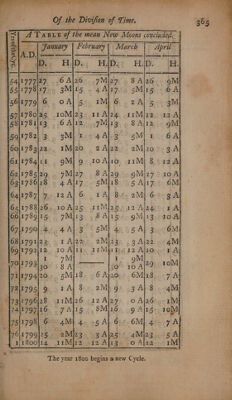 Of the Division of Time. 365
A TABLE of the mean New Moons concluded.
A.D. January February March April
D. H. D. H. D. H. D. H.
54 1777 27 6 A 26 7M 27 8 A 26 9M
55 1778 17 3M 15 4 A 17 5M 15 6 A
56 1779 6 0 A 5 1M 6 2 A 5 3M
57 1780 25 10M 23 11 A 24 11M 22 12 A
58 1781 13 6 A 12 7M 13 8 A 12 9M
59 1782 3 3M 1 4 A 3 5M 1 6 A
60 1783 22 1M 20 2 A 22 2M 20 3 A
61 1784 11 9M 9 10 A 10 11M 8 12 A
62 1785 29 7M 27 8 A 29 9M 27 10 A
63 1786 18 4 A 17 5M 18 5 A 17 6M
64 1787 7 12 A 6 1 A 8 2M 6 3 A
65 1788 26 10 A 25 11M 25 12 A 24 1 A
66 1789 15 7M 13 8 A 15 9M 13 10 A
67 1790 4 4 A 3 5M 4 5 A 3 6M
68 1791 23 1 A 22 2M 23 3 A 22 4M
69 1792 12 10 A 11 11M 11 12 A 10 1 A
70 1793 1 7M 1 9M
30 8 A 30 10 A 29 10M
71 1794 20 5M 18 6 A 20 6M 18 7 A
72 1795 9 1 A 8 2M 9 3 A 8 4M
73 1796 28 11M 26 12 A 27 0 A 26 1M
74 1797 16 7 A 15 8M 16 9 A 15 10M
75 1798 6 4M 4 5 A 6 6M 4 7 A
76 1799 25 2M 23 3 A 25 4M 23 5 A
1 1800 14 11M 12 12 A 13 0 A 12 1M
The year 1800 begins a new Cycle.